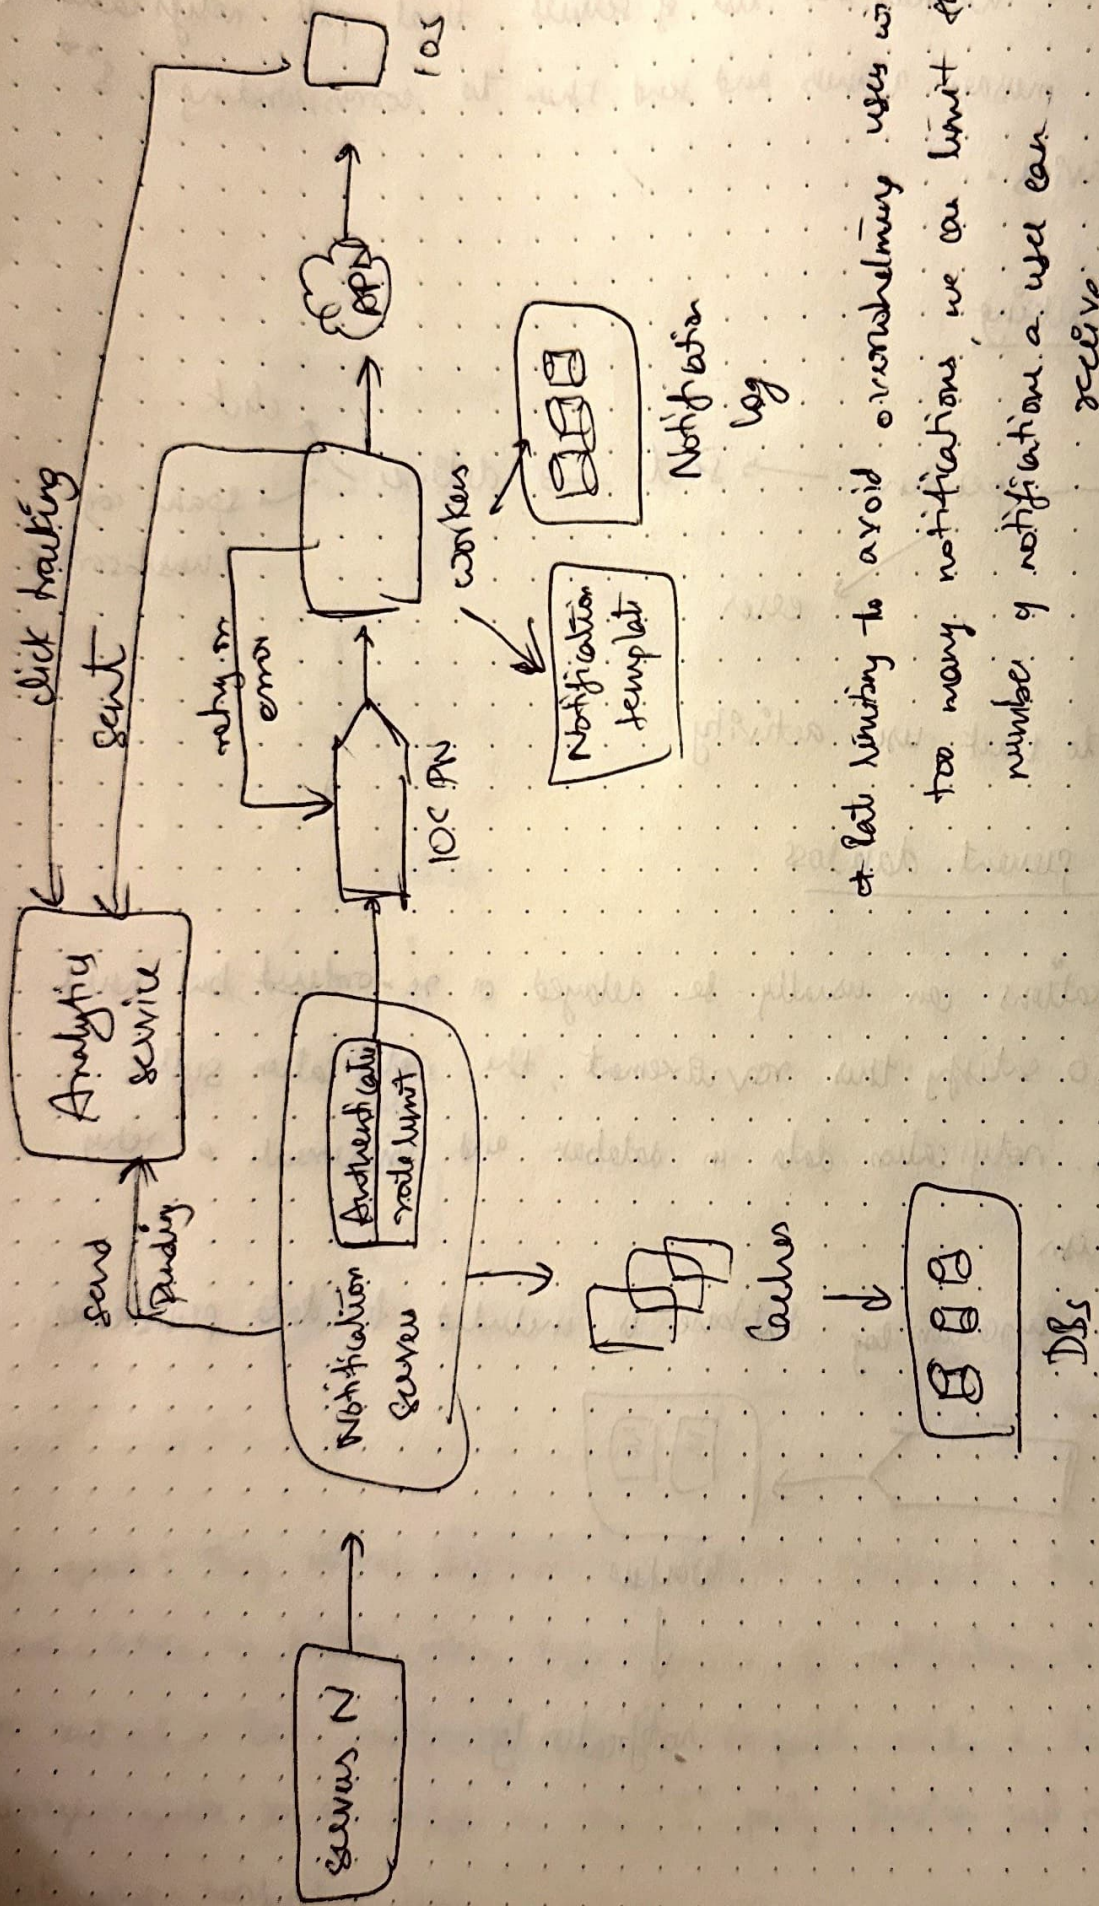 click tracking
sent
send
pending
Analytics
service
retry on
error
Servers N
Notification
Server
Authenticatio
rate limit
IOS PN
workers
APN
IOS
Caches
DBs
Notification
templat
Notification
log
Rate limiting to avoid overwhelming users wi
too many notifications, we can limit th
number of notifications a user can
receive